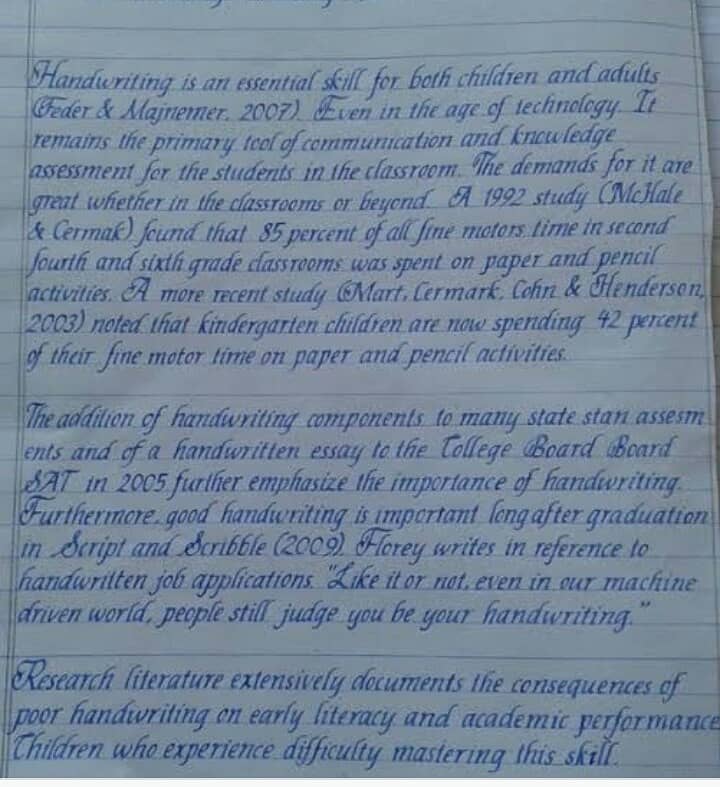 Handwriting is an essential skill for both children and adults
(Feder & Majnemer, 2007). Even in the age of technology. It
remains the primary tool of communication and knowledge
assessment for the students in the classroom. The demands for it are
great whether in the classrooms or beyond. A 1992 study (McHale
& Cermak) found that 85 percent of all fine motors time in second
fourth and sixth grade classrooms was spent on paper and pencil
activities. A more recent study (Marr, Cermark, Cohn & Henderson,
2003) noted that kindergarten children are now spending 42 percent
of their fine motor time on paper and pencil activities.
The addition of handwriting components to many state stan assesm
ents and of a handwritten essay to the College Board Board
SAT in 2005 further emphasize the importance of handwriting.
Furthermore, good handwriting is important long after graduation
in Script and Scribble (2009). Florey writes in reference to
handwritten job applications. "Like it or not, even in our machine
driven world, people still judge you be your handwriting."
Research literature extensively documents the consequences of
poor handwriting on early literacy and academic performance
Children who experience difficulty mastering this skill.